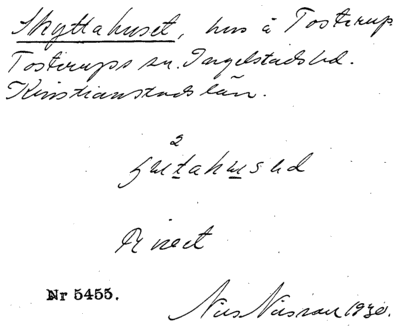 Skyttahuset, hus å Tosterup
Tosterups sn. Ingelstads hd.
Kristianstads län.
2
Rivet
Nr 5455.
Nils Nilsson 1930.